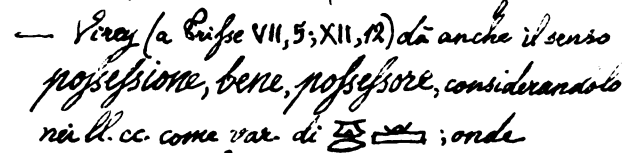 — Virey (a Prisse VII, 5; XII, 12) dà anche il senso
possessione, bene, possessore, considerandolo
nei ll. cc. come var. di ; onde